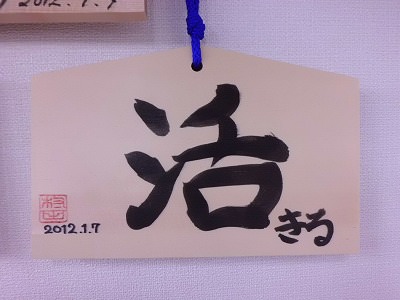 2012.1.7
活きる
2012.1.7